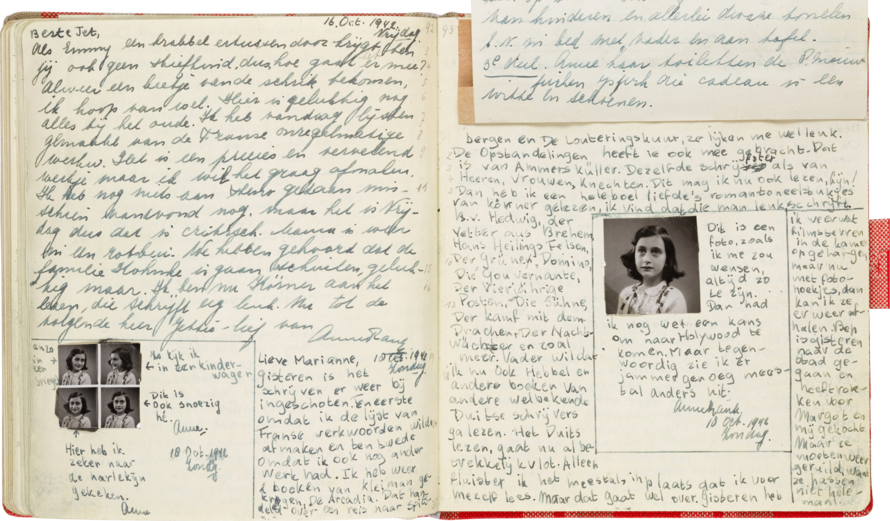 16. Oct. 1942
Vrijdag
Beste Jet,
Als Emmy een krabbel ertussen door krijgt, ben
jij ook geen stiefkind, dus hoe gaat er mee?
Alweer een beetje van de schrik bekomen,
ik hoop van wel. Hier is gelukkig nog
alles bij het oude. Ik heb vandaag lijsten
gemaakt van de Franse onregelmatige
werkw. Het is een precies en vervelend
werkje maar ik wil het graag afmaken.
Ik heb nog niets aan steno gedaan mis-
schien vanavond nog, maar het is Vrij-
dag dus dat is critisch. Mama is weer
in een rotbui. We hebben gehoord dat de
familie is gaan schuilen, geluk-
kig maar. Ik ben nu Körner aan het
lezen, die schrijft erg leuk. Nu tot de
volgende keer, Jetje-lief van
Anne Frank
Nu kijk ik
in een kinder-
wagen
Dit is
ook snoezig
hè.
Anne.
18 Oct. 1942
Zondag
Hier heb ik
zeker naar
de harlekijn
gekeken.
Anne
Lieve Marianne,
18 Oct. 1942
Zondag
gisteren is het
schrijven er weer bij
ingeschoten. Ten eerste
omdat ik de lijst van
Franse werkwoorden wilde
afmaken en ten twede
omdat ik ook nog ander
werk had. Ik heb weer
2 boeken van kleiman ge-
kregen. De Arcadia. Dat han-
delt over een reis naar Spitz-
van kinderen en allerlei dwaze tonelen
b.v. in bed met vader en aan tafel.
cadeau is een
bergen en De Louteringskuur, ze lijken me wel leuk.
De Opstandelingen heeft ie ook mee gebracht. Dat
is van Ammers küller. Dezelfde schrijfster als van
Heeren, Vrouwen, Knechten. Dit mag ik nu ook lezen, fijn!
Dan heb ik een heleboel liefde's romantoneelstukjes
van körner gelezen, ik vind dat die man leuk schrijft.
B.v. Hedwig, der
Vetter aus Bremen
Hans Heilings Felsen,
Der Grüne Domino,
Die Gouvernante,
Der Vierjährige
Posten, Die Sühne,
Der kampf mit dem
Drachen, Der Nacht-
wächter en zoal
meer. Vader wil dat
ik nu ook Hebbel en
andere boeken van
andere welbekende
Duitse schrijvers
ga lezen. Het Duits
lezen, gaat nu al be-
trekkelijk vlot. Alleen
fluister ik het meestal, in plaats dat ik voor
mezelf lees. Maar dat gaat wel over. gisteren heb
Dit is een
foto, zoals
ik me zou
wensen,
altijd zo
te zijn.
Dan had
ik nog wel een kans
om naar Holywood te
komen. Maar tegen-
woordig zie ik er
jammer genoeg mees-
tal anders uit.
Anne Frank.
18 Oct. 1942
Zondag.
ik veel uit
filmsterren
in de kamer
opgehangen,
maar nu
met foto-
hoekjes, dan
kan ik ze
er weer af-
halen. Bep
is gisteren
naar de
stad ge-
gaan en
heeft rok-
ken voor
Margot en
mij gekocht.
Maar ze
moeten weer
geruild, want
ze passen
niet hele-
maal.